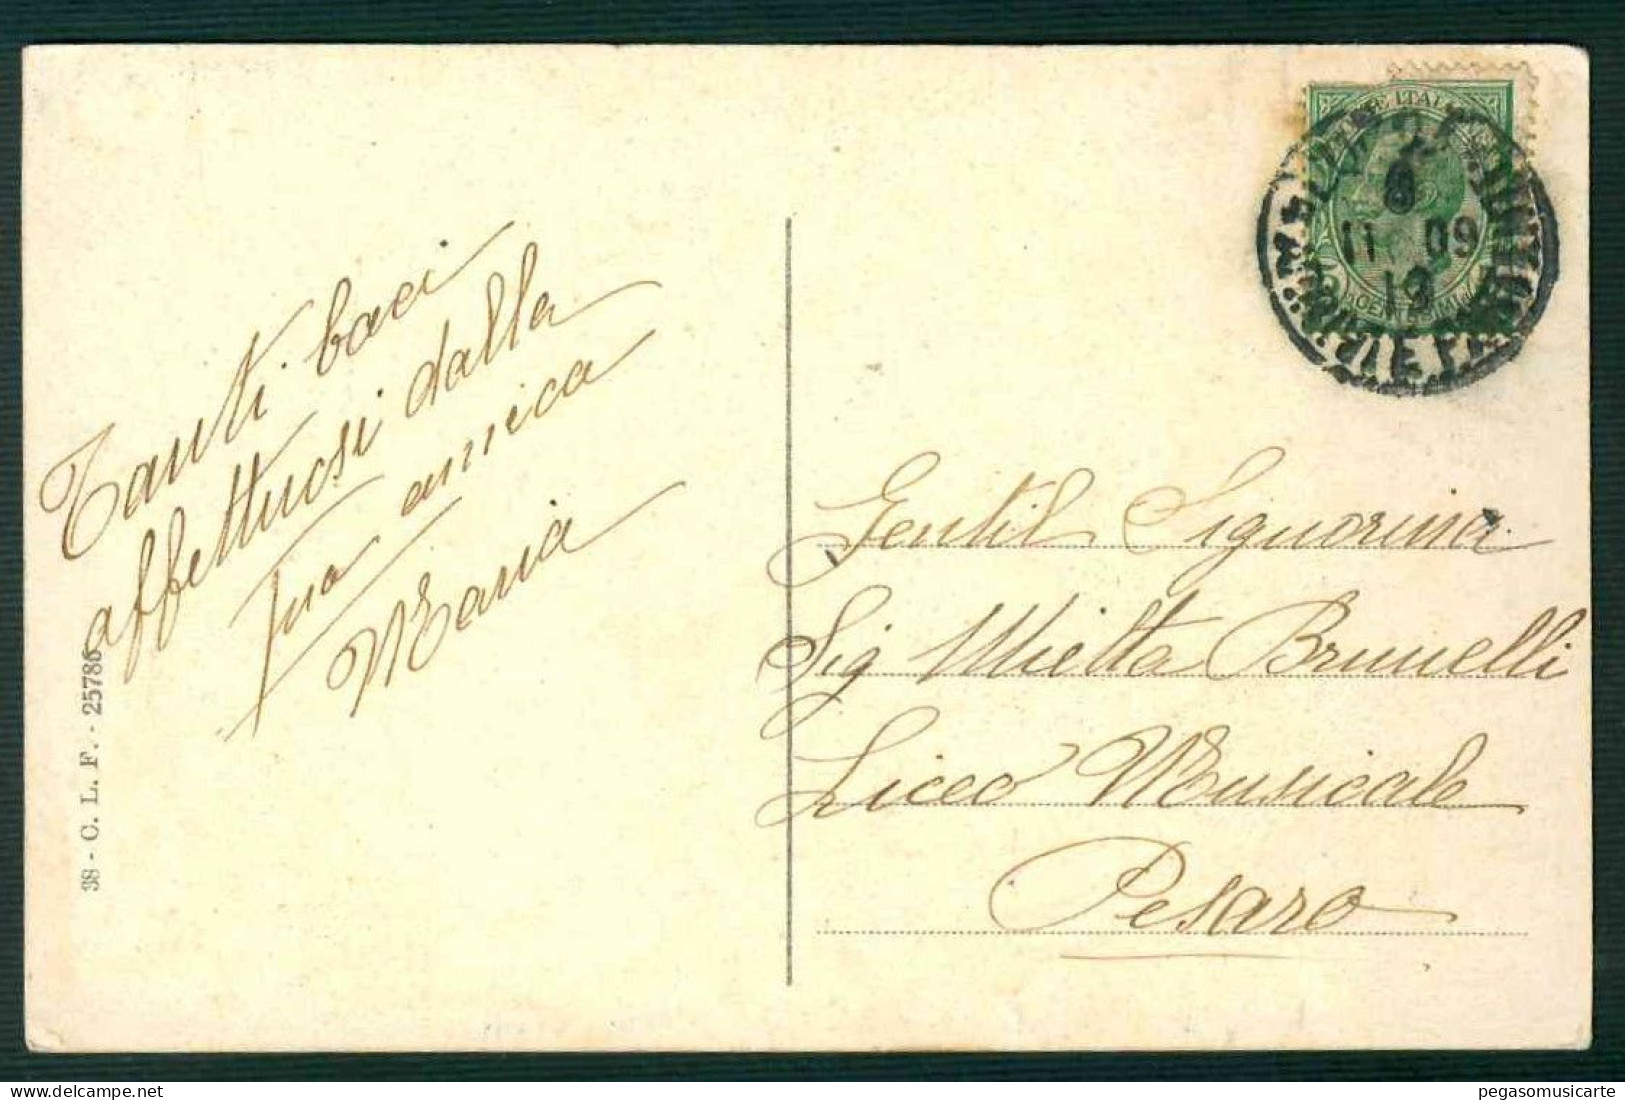 Tanti baci
affettuosi dalla
tua amica
Maria
38 - C. L. F. - 25786
11 09
19
Gentil Signorina
Sig Mietta Brunelli
Liceo Musicale
Pesaro
pegasomusicarte